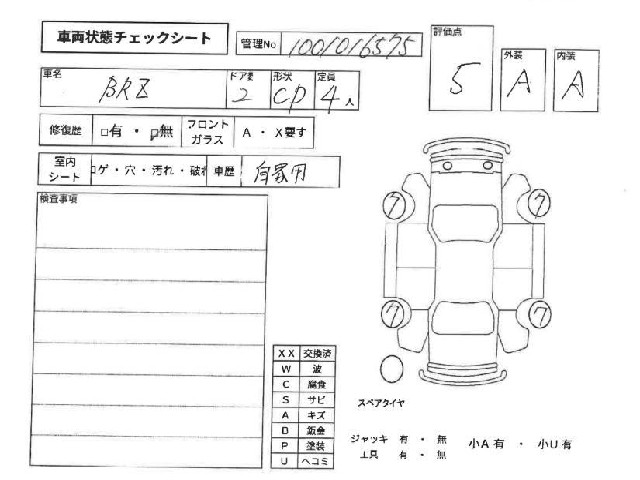 車両状態チェックシート
管理No 1001016575
評価点
5
外装
A
内装
A
車名
BRZ
ドア数
2
形状
CP
定員
4人
修復歴 □有 ・ □無 フロントガラス A ・ X要す
室内シート コゲ・穴・汚れ・破れ 車歴 自家用
検査事項
7
7
7
7
XX 交換済
W 波
C 腐食
S サビ
A キズ
B 鈑金
P 塗装
U ヘコミ
スペアタイヤ
ジャッキ 有 ・ 無
工具 有 ・ 無
小A有 ・ 小U有